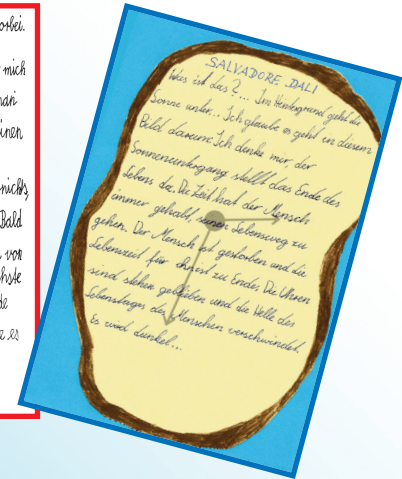 orbei.
mich
man
inen
nichts,
Bald
von
chste
de
es
SALVADORE DALI
Was ist das?... Im Hintergrund geht die
Sonne unter... Ich glaube es geht in diesem
Bild darum: Ich denke mir der
Sonnenuntergang stellt das Ende des
Lebens da. Die Zeit hat der Mensch
immer gehabt, seinen Lebensweg zu
gehen. Der Mensch ist gestorben und die
Lebenszeit für ihn ist zu Ende. Die Uhren
sind stehen geblieben und die Welle des
Lebens des Menschen verschwindet.
Es wird dunkel...